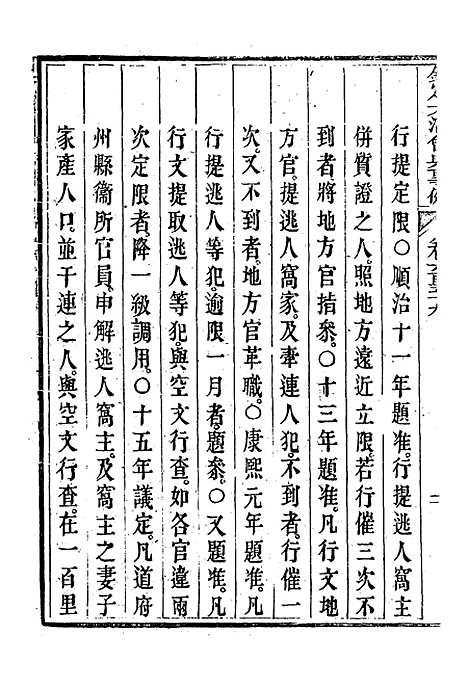 欽定大清會典事例
卷八百五十九
行提定限〇順治十一年題准。行提逃人窩主
併質證之人。照地方遠近立限。若行催三次不
到者。將地方官指參。〇十三年題准。凡行文地
方官。提逃人窩家。及牽連人犯。不到者。行催一
次。又不到者。地方官革職。〇康熙元年題准。凡
行提逃人等犯。逾限一月者。題參。〇又題准。凡
行文提取逃人等犯。與空文行查。如各官違兩
次定限者。降一級調用。〇十五年議定。凡道府
州縣衞所官員。申解逃人窩主。及窩主之妻子
家產人口。並干連之人。與空文行查。在一百里